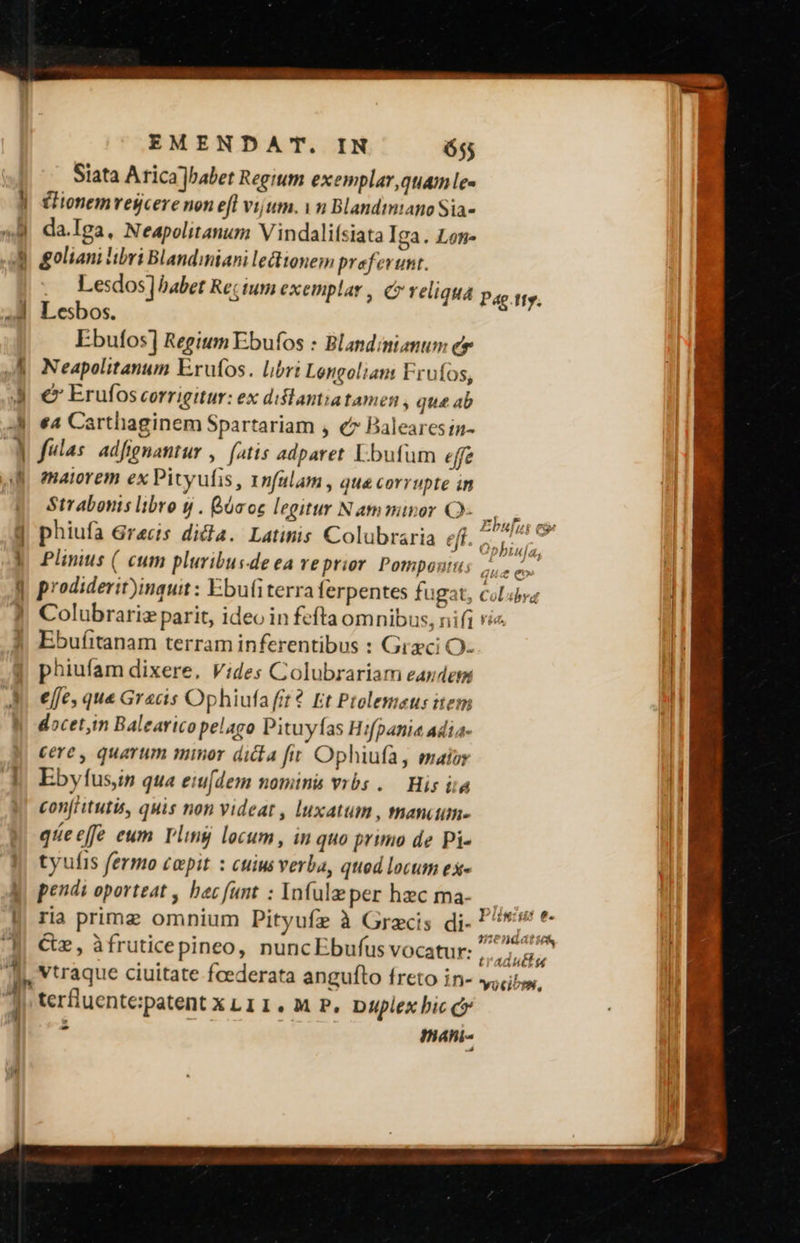 EMENDAT. IN 655
Siata Arica]habet Regium exemplar,quam le-
ctionem reijcere non est visum. in Blandiniano Sia-
da.Iga, Neapolitanum Vindalissiata Iga. Lon-
goliani libri Blandiniani lectionem præferunt.
Lesdos]habet Regium exemplar, & reliqua
Lesbos.
Pag.119.
Ebusos] Regium Ebusos : Blandinianum &
Neapolitanum Erusos. libri Longoliani Frusos,
& Erusos corrigitur: ex distantia tamen, quæ ab
ea Carthaginem Spartariam, & Baleares in-
sulas adsignantur, satis adparet Ebusum esse
maiorem ex Pityusis, insulam, quæ corrupte in
Strabonis libro ij. βύσος legitur Nam minor O-
phiusa Græcis dicta. Latinis Colubraria est.
Plinius ( cum pluribus de ea re prior Pomponius
prodiderit)inquit: Ebusi terra serpentes fugat,
Ebusus &
Ophiusa,
quæ &
Colubra
ria.
Colubrariæ parit, ideo in festa omnibus, nisi
Ebusitanam terram inferentibus : Græci O-
phiusam dixere. Vides Colubrariam eandem
esse, quæ Græcis Ophiusa sit? Et Ptolemæus item
docet,in Balearico pelago Pituysas Hispaniæ adia-
cere, quarum minor dicta sit Ophiusa, maior
Ebysus,in qua eiusdem nominis vrbs. His ita
constitutis, quis non videat, luxatum, mancum-
que esse eum Plinij locum, in quo primo de Pi-
tyusis sermo cœpit : cuius verba, quod locum ex-
pendi oporteat, hæc sunt : Insulæ per hæc ma-
ria primæ omnium Pityusæ à Græcis di-
ctæ, à frutice pineo, nunc Ebusus vocatur:
vtraque ciuitate fœderata angusto freto in-
Plinius e-
mendatus,
traductis
vocibus,
terfluente:patent XLII. M P. Duplex hic &
mani-